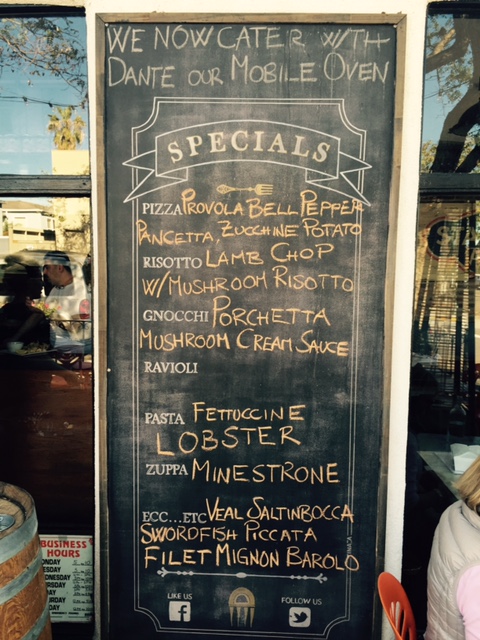 WE NOW CATER WITH
DANTE OUR MOBILE OVEN
SPECIALS
PIZZA PROVOLA BELL PEPPER
PANCETTA, ZUCCHINE POTATO
RISOTTO LAMB CHOP
W/ MUSHROOM RISOTTO
GNOCCHI PORCHETTA
MUSHROOM CREAM SAUCE
RAVIOLI
PASTA FETTUCCINE
LOBSTER
ZUPPA MINESTRONE
ECC...ETC VEAL SALTINBOCCA
SWORDFISH PICCATA
FILET MIGNON BAROLO
LIKE US
FOLLOW US
BUSINESS
HOURS